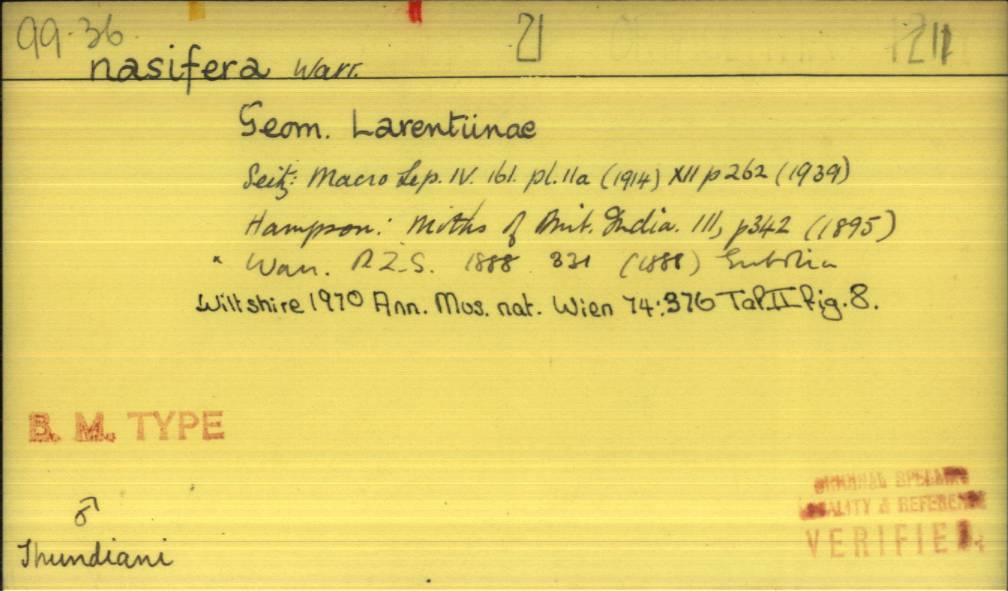 99-36 21 1211
nasifera Warr.
Geom. Larentiinae
Seitz: Macro Lep. IV. 161. pl.11a (1914) XII p262 (1939)
Hampson: Moths of Brit. India. III, p342 (1895)
" Warr. P.Z.S. 1888 321 (1888) Eubolia
Wiltshire 1970 Ann. Mus. nat. Wien 74:376 Taf II fig. 8.
B. M. TYPE
♂
Thundiani
ORIGINAL SPELLING
LOCALITY & REFERENCE
VERIFIED.